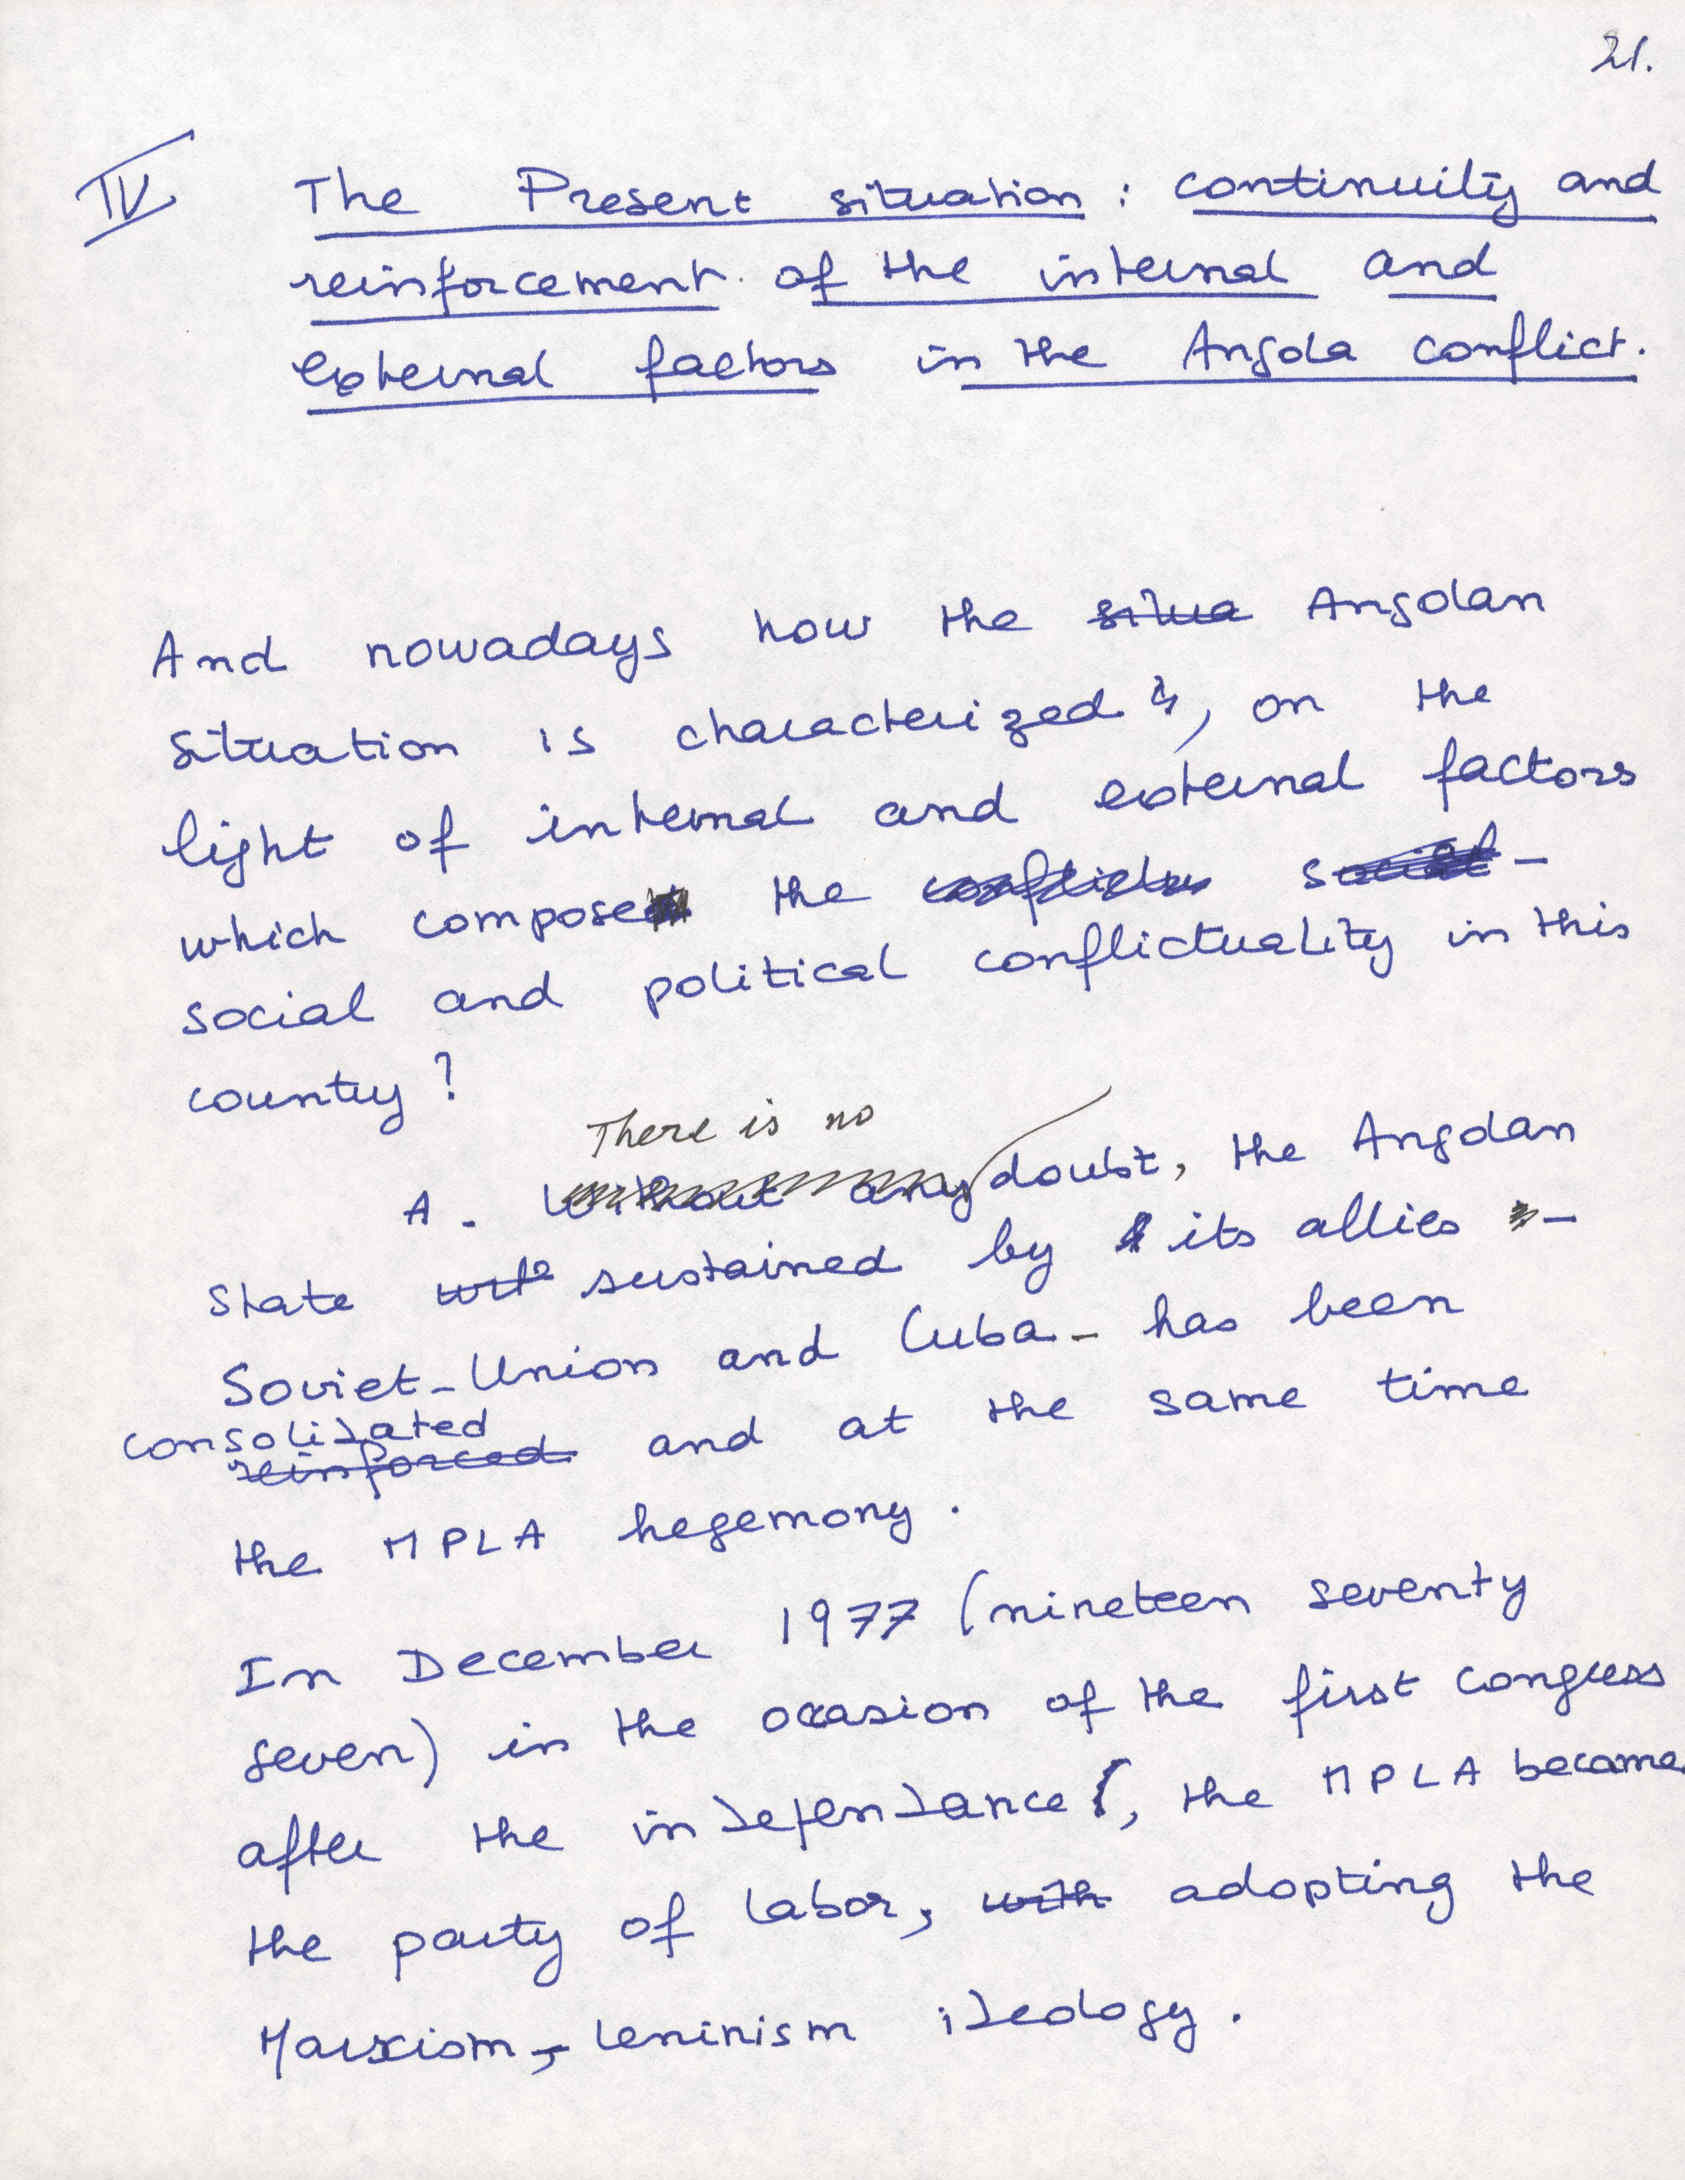 21.
IV The Present situation : continuity and
reinforcement of the internal and
external factors in the Angola conflict.
And nowadays how the situa Angolan
situation is characterized, on the
light of internal and external factors
which compose the conflictu social -
social and political conflictuality in this
country?
There is no
A. Without any doubt, the Angolan
State with sustained by its allies -
Soviet-Union and Cuba - has been
consolidated
reinforced and at the same time
the MPLA hegemony.
In December 1977 (nineteen seventy
seven) in the occasion of the first congress
after the independance, the MPLA became
the party of labor, with adopting the
Marxism-leninism ideology.